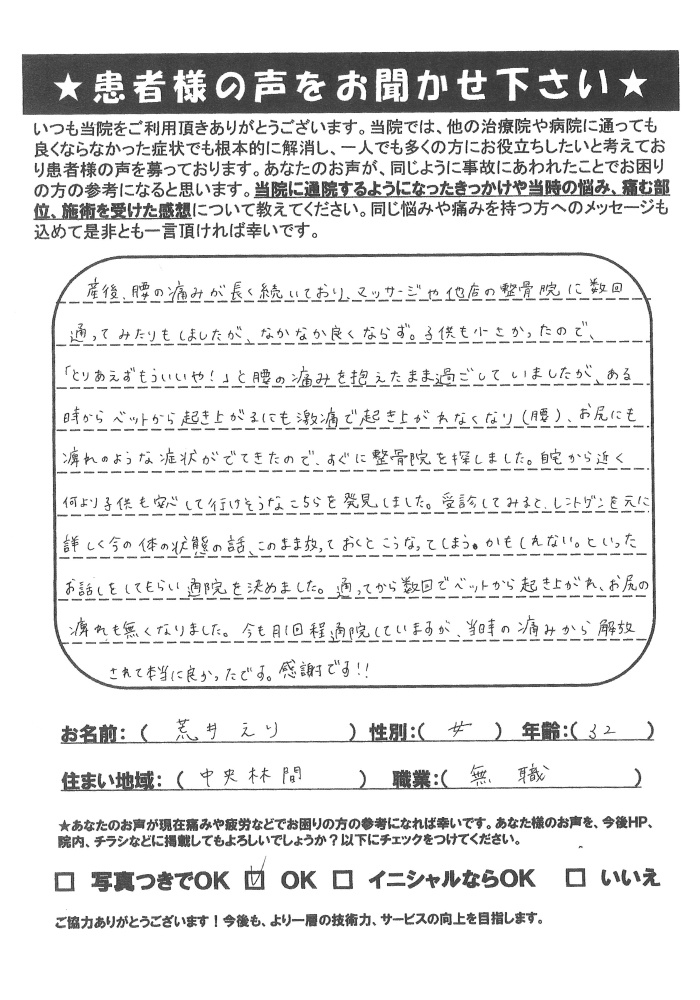 ★患者様の声をお聞かせ下さい★
いつも当院をご利用頂きありがとうございます。当院では、他の治療院や病院に通っても
良くならなかった症状でも根本的に解消し、一人でも多くの方にお役立ちしたいと考えてお
り患者様の声を募っております。あなたのお声が、同じように事故にあわれたことでお困り
の方の参考になると思います。当院に通院するようになったきっかけや当時の悩み、痛む部
位、施術を受けた感想について教えてください。同じ悩みや痛みを持つ方へのメッセージも
込めて是非とも一言頂ければ幸いです。
産後、腰の痛みが長く続いており、マッサージや他店の整骨院に数回
通ってみたりもしましたが、なかなか良くならず。子供も小さかったので、
「とりあえずもういいや!」と腰の痛みを抱えたまま過ごしていましたが、ある
時からベットから起き上がるにも激痛で起き上がれなくなり(腰)、お尻にも
痺れのような症状がでてきたので、すぐに整骨院を探しました。自宅から近く
何より子供も安心して行けそうなこちらを発見しました。受診してみると、レントゲンを元に
詳しく今の体の状態の話、このまま放っておくとこうなってしまう。かもしれない。といった
お話しをしてもらい通院を決めました。通ってから数回でベットから起き上がれ、お尻の
痺れも無くなりました。今も月1回程通院していますが、当時の痛みから解放
されて本当に良かったです。感謝です!!
お名前:( 荒井えり ) 性別:( 女 ) 年齢:( 32 )
住まい地域: ( 中央林間 ) 職業:( 無職 )
★あなたのお声が現在痛みや疲労などでお困りの方の参考になれば幸いです。あなた様のお声を、今後HP、
院内、チラシなどに掲載してもよろしいでしょうか?以下にチェックをつけてください。
□ 写真つきでOK ☑ OK □ イニシャルならOK □ いいえ
ご協力ありがとうございます!今後も、より一層の技術力、サービスの向上を目指します。